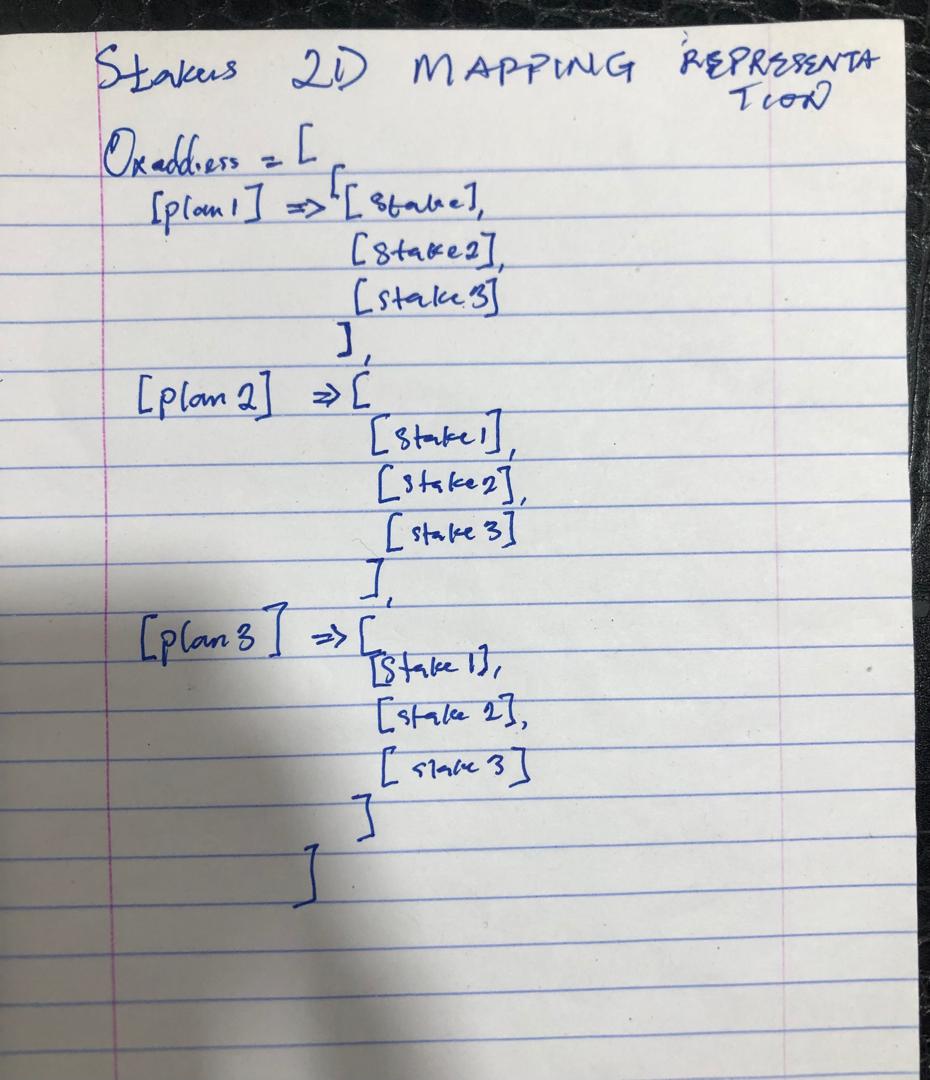 Stakers 2D MAPPING REPRESENTA
TION
0xaddress = [
[plan1] => [[stake],
[stake2],
[stake3]
],
[plan 2] => [
[stake1],
[stake2],
[stake 3]
],
[plan 3] => [
[Stake 1],
[stake 2],
[stake 3]
]
]